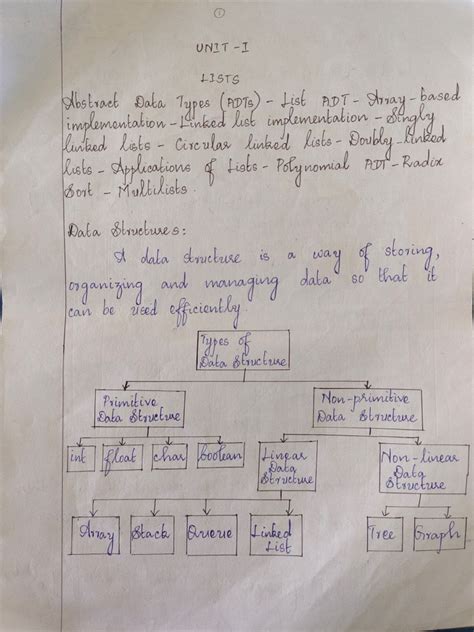 1
UNIT - I
LISTS
Abstract Data Types (ADTs) - List ADT - Array-based
implementation - Linked list implementation - Singly
linked lists - Circular linked lists - Doubly-linked
lists - Applications of Lists - Polynomial ADT - Radix
Sort - Multilists.
Data Structures:
A data structure is a way of storing,
organizing and managing data so that it
can be used efficiently.
Types of
Data Structure
Primitive
Data Structure
Non-primitive
Data Structure
int
float
char
boolean
Linear
Data
Structure
Non-linear
Data
Structure
Array
Stack
Queue
Linked
List
Tree
Graph